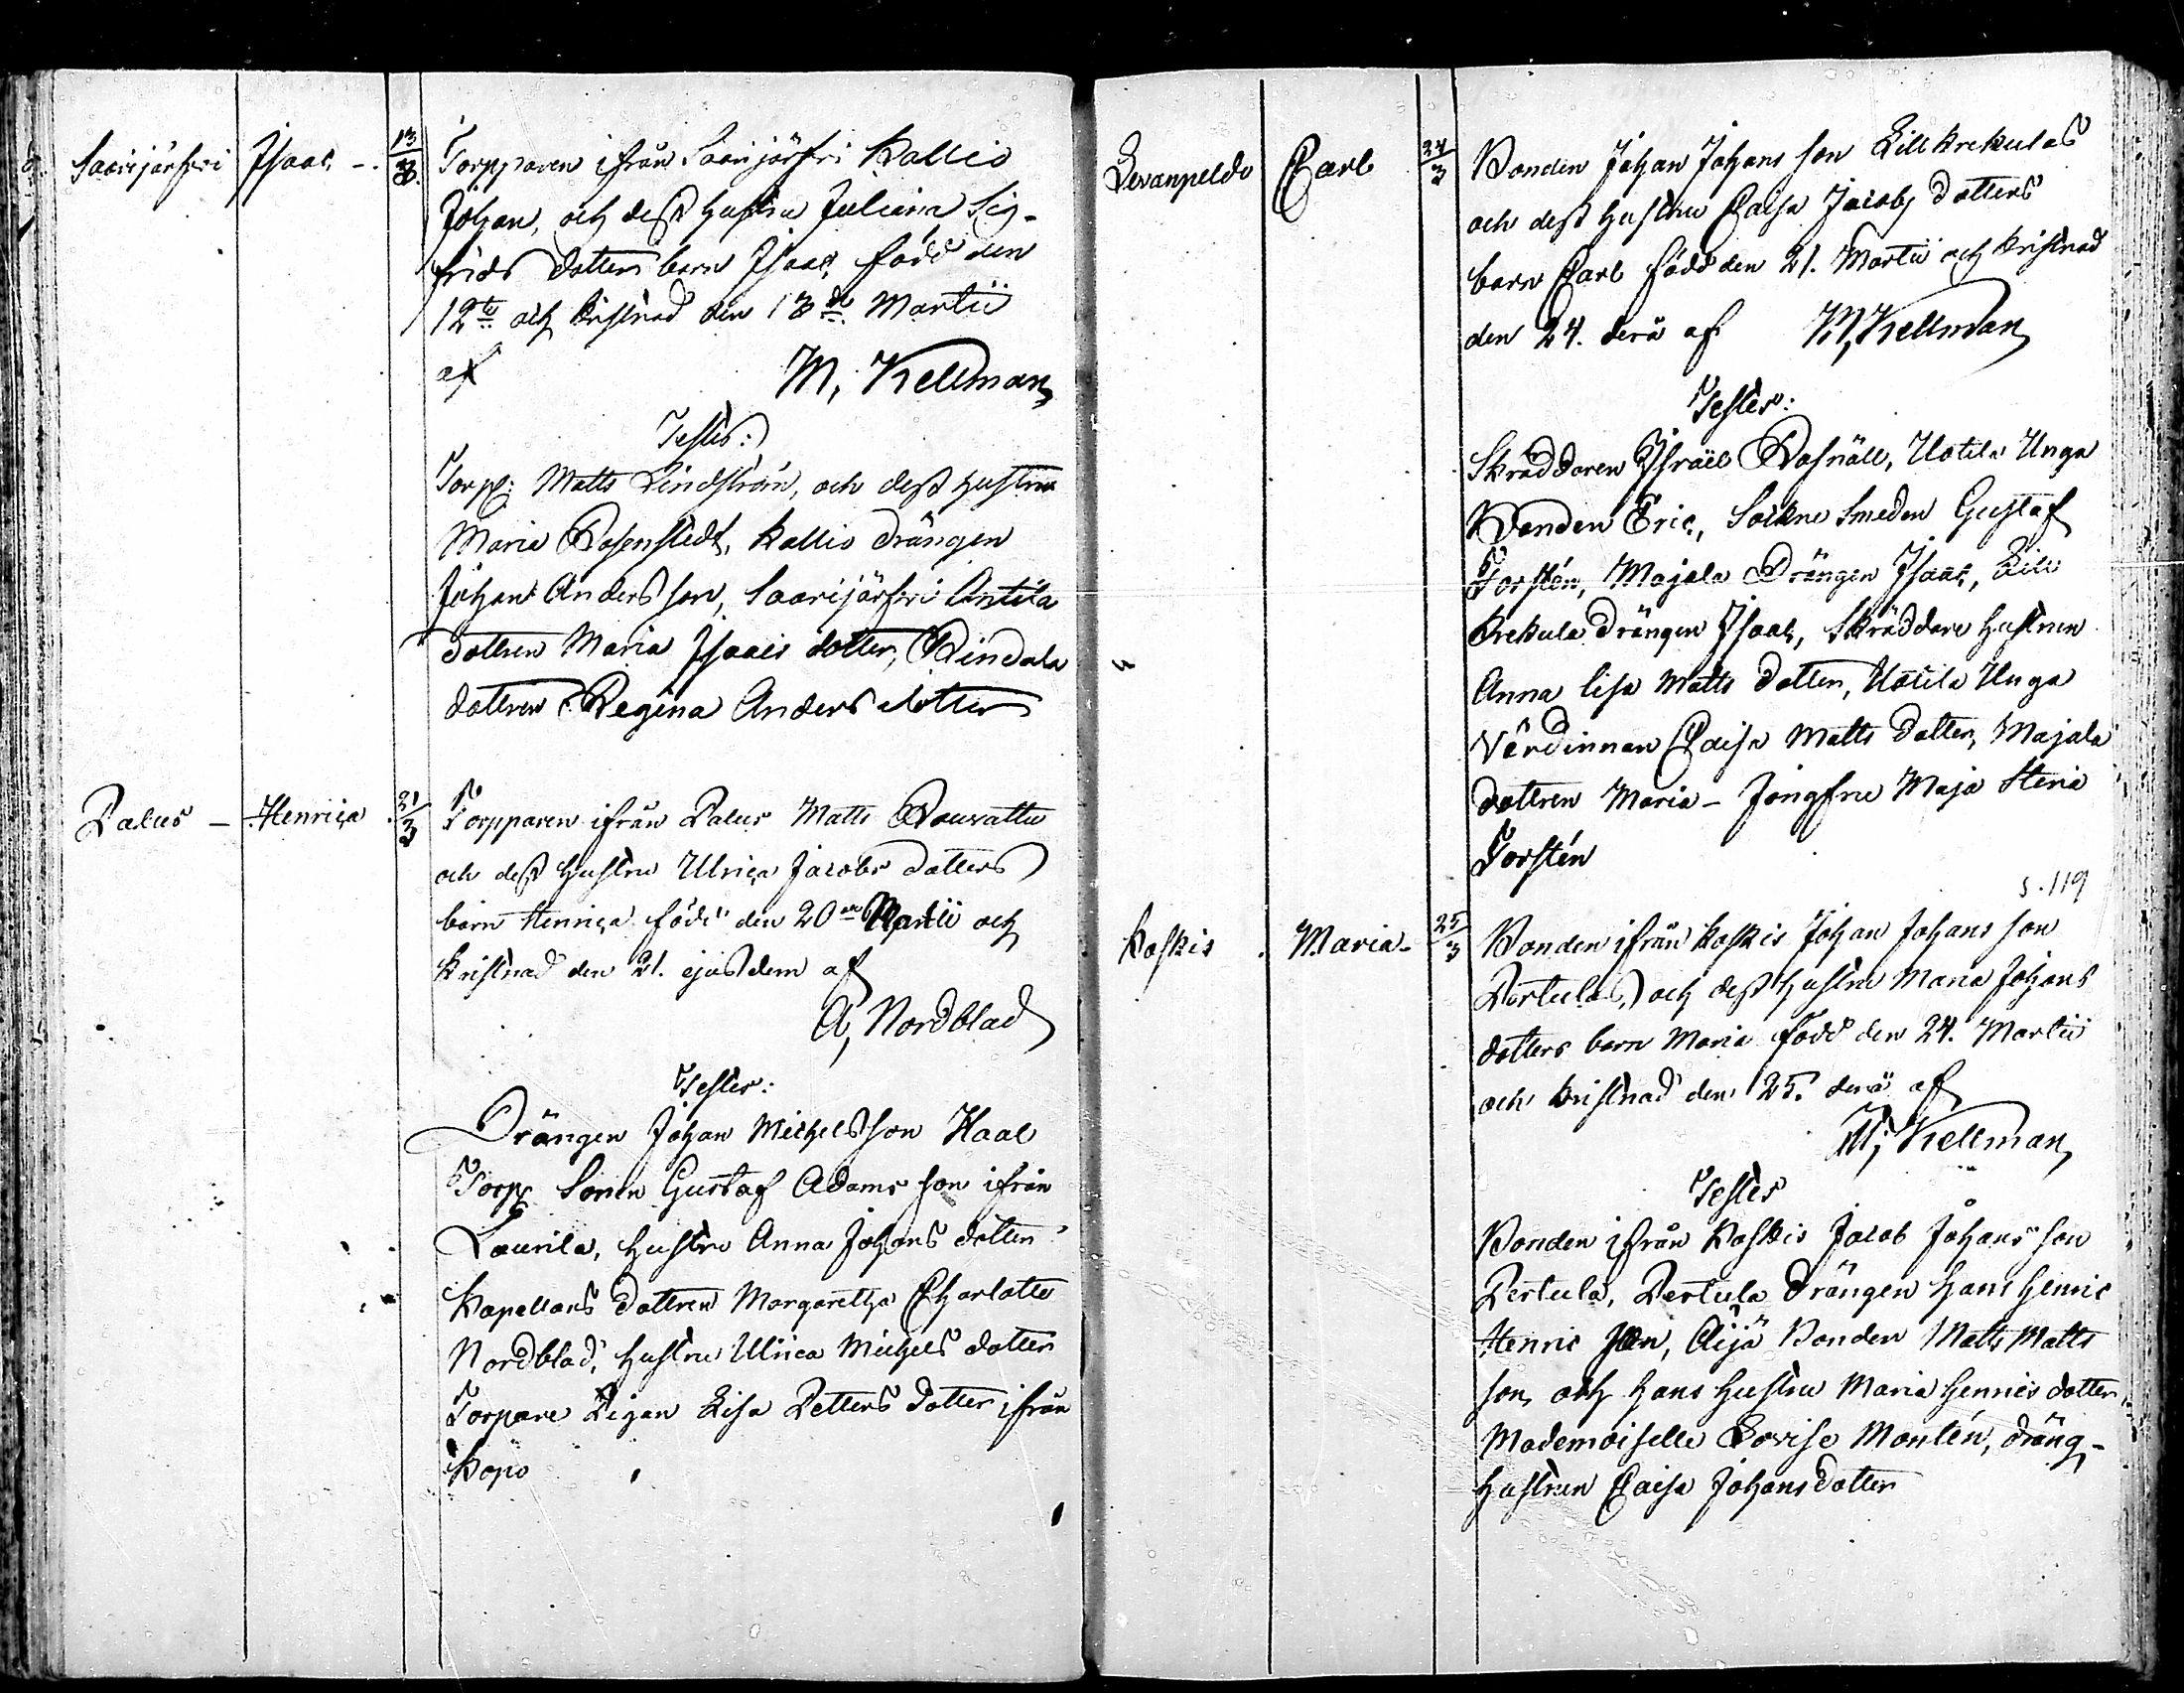 Saarijärfwi Isaac - 13/3
Torpparen ifrån Saarijärfvi Kallio
Johan, och dess hustru Juliana Sig-
frids dotters barn Isaac, född den
12te och kristnad den 13de Martii
af M. Kellman
Testes:
Torp: Matts Lindström, och dess hustru
Maria Rosenstedt, Kallio drängen
Johan Andersson, Saarijärfvi Antila
dottren Maria Isaacs dotter, Rindala
dottren Regina Anders dotter
Palus - Henrica 21/3
Torpparen ifrån Palus Matts
och dess hustru Ulrica Jacobs dotters
barn Henrica född den 20de Martii och
kristnad den 21. ejusdem af
A, Nordblad
Testes:
Drängen Johan Michelsson Haal
Torp Sonen Gustaf Adams son ifrån
Laurila, hustru Anna Johans dotter
Kapellans dottren Margaretha Charlotta
Nordblad, hustru Ulrica Michels dotter
Torpare Pigan Lisa Petters dotter ifrån
Kopo
Levanpeldo Carl 24/3
Bonden Johan Johans son Lillkrekulas
och dess hustru Caisa Jacobs dotters
barn Carl född den 21. Martii och kristnad
den 24. derå af M, Kellman
Testes:
Skräddaren Israël Rosnäll, Uotila Unga
Bonden Eric, Sockne Smeden Gustaf
Torstén, Majala Drängen Isaac, Lill
Krekula drängen Isaac, Skräddare hustrun
Anna Lisa Matts dotter, Uotila Unga
Värdinnan Caisa Matts dotter, Majala
dottren Maria - Jungfru Maja Stina
Torstén
s. 119
Koskis . Maria - 25/3
Bonden ifrån Koskis Johan Johans son
Pertulas, och dess hustru Maria Johans
dotters barn Maria född den 24. Martii
och kristnad den 25. derå af
M, Kellman
Testes
Bonden ifrån Koskis Jacob Johans son
Pertula, Pertula drängen Hans Henric
Henric son, Äijä Bonden Matts Matts
son, och hans hustru Maria Henrics dotter
Mademoiselle Lovisa Montén, dräng-
hustrun Caisa Johans dotter